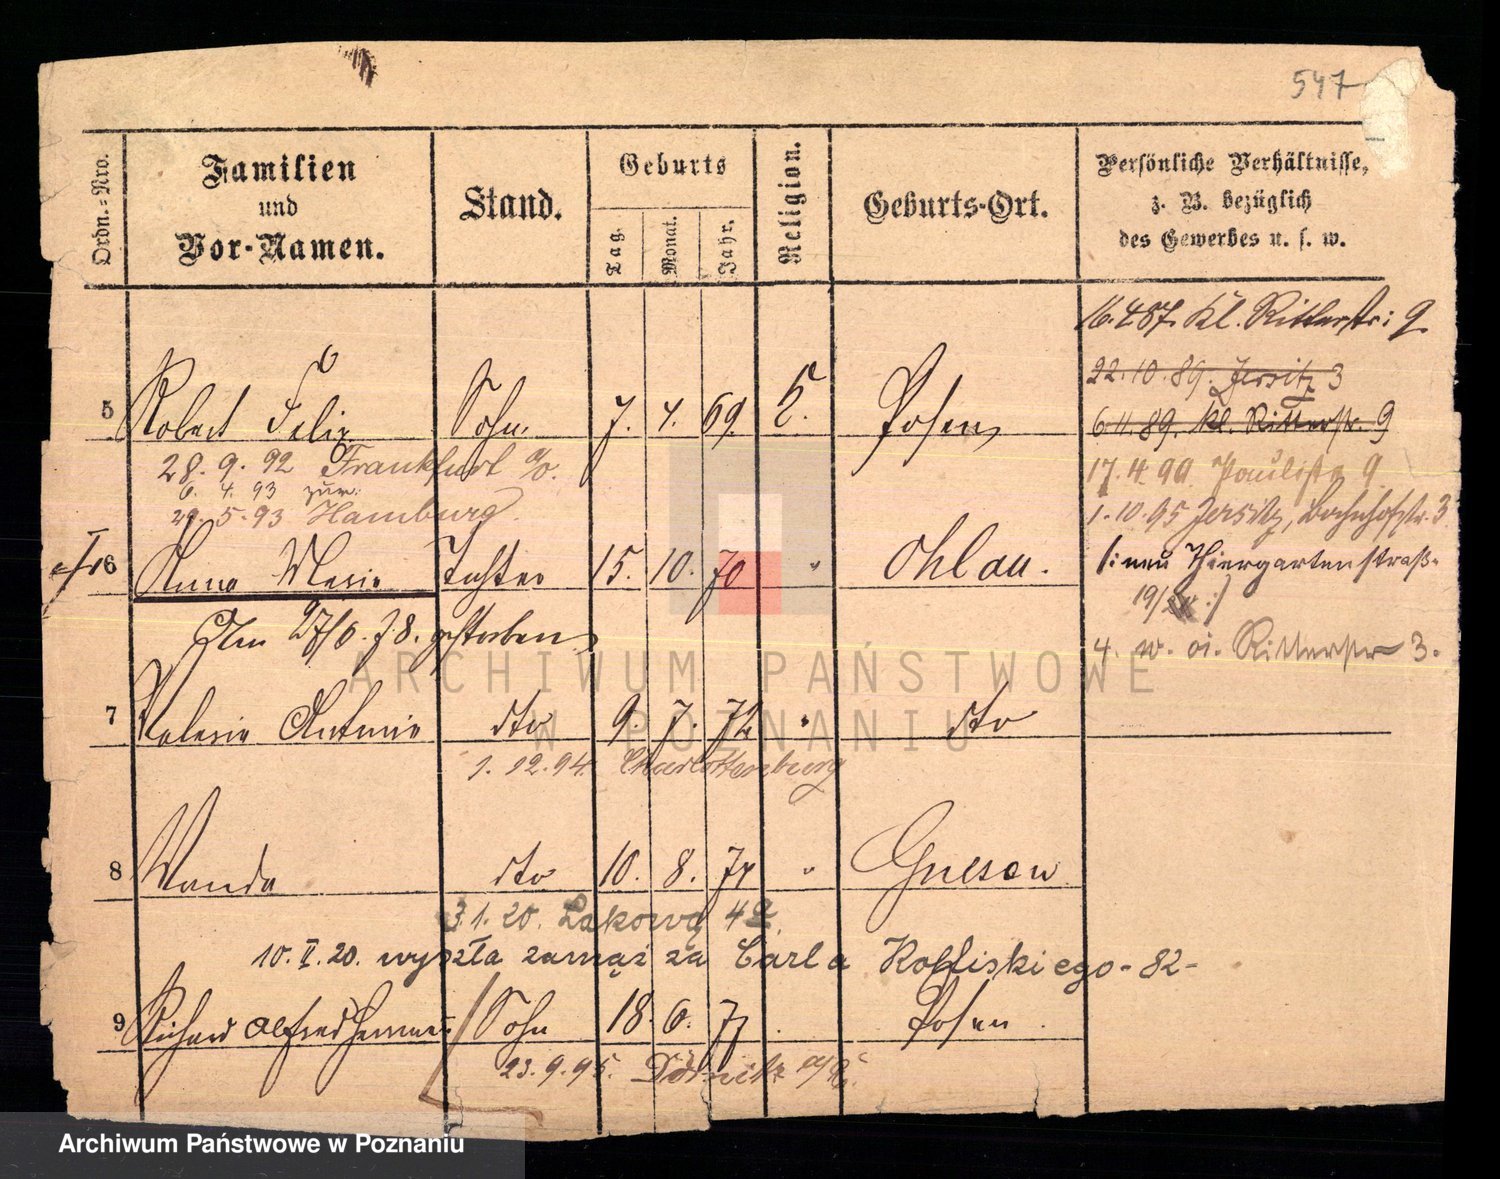 547
Ordn.-Nro.
Familien
und
Vor-Namen.
Stand.
Geburts
Tag.
Monat.
Jahr.
Religion.
Geburts-Ort.
Persönliche Verhältnisse,
z. B. bezüglich
des Gewerbes u. s. w.
16.4 87. Kl. Ritterstr: 9
22.10.89. Jersitz 3
6.11.89. Kl. Ritterstr. 9
17.4.90. Paulistr. 9
1.10.95 Jersitz, Bahnhofstr. 3
/: neu Thiergartenstraß.
19/ :/
4. w. oi. Ritterstr 3.
5 Robert Felix Sohn. 7. 4. 69. Posen
28.9.92 Frankfurt a/o.
6.4.93 zur.
29.5.93 Hamburg.
6 Anna Marie Tochter 15. 10. 70 " Ohlau.
Den 27/6. 78. gestorben
7 Valeria Antonie dto 9. 7. 72 " dto
1.12.94. Charlottenburg
8 Wanda dto 10. 8. 74 " Gnesen
3.1.20. Łąkową 4
10.II.20. wyszła zamąż za Carla -82-
9 Richard Alfred Sohn 18. 6. 77 . Posen.
23.9.95.
ARCHIWUM PAŃSTWOWE
W POZNANIU
Archiwum Państwowe w Poznaniu